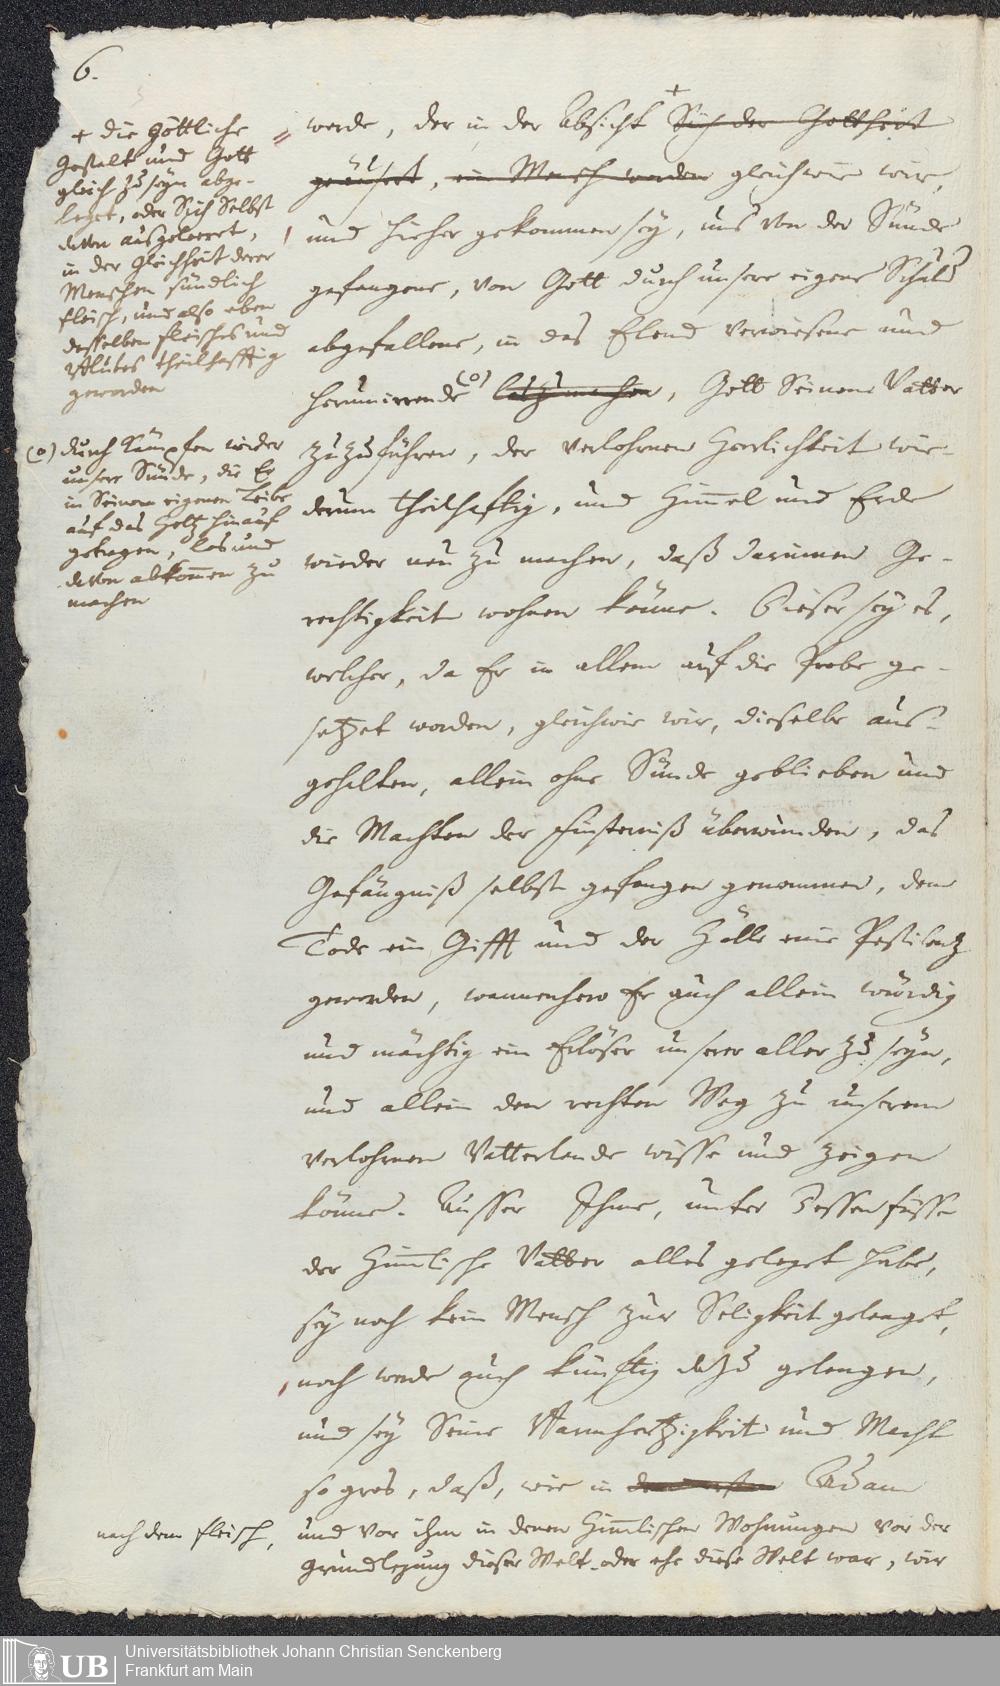 6.
+ die Göttliche
Gestalt und Gott
gleich zu seyn abge-
leget, oder Sich Selbst
davon ausgeleeret,
in der Gleichheit derer
Menschen sündlich
fleisch, und also eben
desselben fleisches und
Blutes theilhafftig
geworden
(o) durch Kämpfen wieder
unsere Sünde, die Er
in Seinem eigenen Leibe
auf das Holtz hinauf
getragen, los und
davon abkommen zu
machen
werde, der in der Absicht + Sich der Gottheit
geäusert, ein Mensch worden gleichwie wir,
und hieher gekommen sey, uns von der Sünde
gefangene, von Gott durch unsere eigene Schuld
abgefallene, in das Elend verwiesene und
herumirrende (o) los zu machen, Gott Seinem Vatter
zuzuführen, der verlohrnen Herrlichkeit wie-
derum theilhaftig, und Himmel und Erde
wieder neu zu machen, daß darinnen Ge-
rechtigkeit wohnen könne. Dieser sey es,
welcher, da Er in allem auf die Probe ge-
setzet worden, gleichwie wir, dieselbe aus-
gehalten, allein ohne Sünde geblieben und
die Machten der Finsterniß überwunden, das
Gefängniß selbst gefangen genommen, dem
Tode ein Gifft und der Hölle eine Pestilentz
geworden, wannenhero Er auch allein würdig
und mächtig ein Erlöser unserer aller zu seyn,
und allein den rechten Weg zu unserem
verlohrnen Vatterlande wisse und zeigen
könne. Ausser Ihme, unter Dessen füsse
der Himmlische Vatter alles geleget habe,
sey noch kein Mensch zur Seligkeit gelanget,
noch werde auch künftig dazu gelangen,
und sey Seine Barmhertzigkeit und Macht
so gros, daß, wie in dem ersten Adam
nach dem fleisch,
und vor ihm in denen Himmlischen Wohnungen vor der
grundlegung dieser Welt oder ehe diese Welt war, wir
UB Universitätsbibliothek Johann Christian Senckenberg
Frankfurt am Main